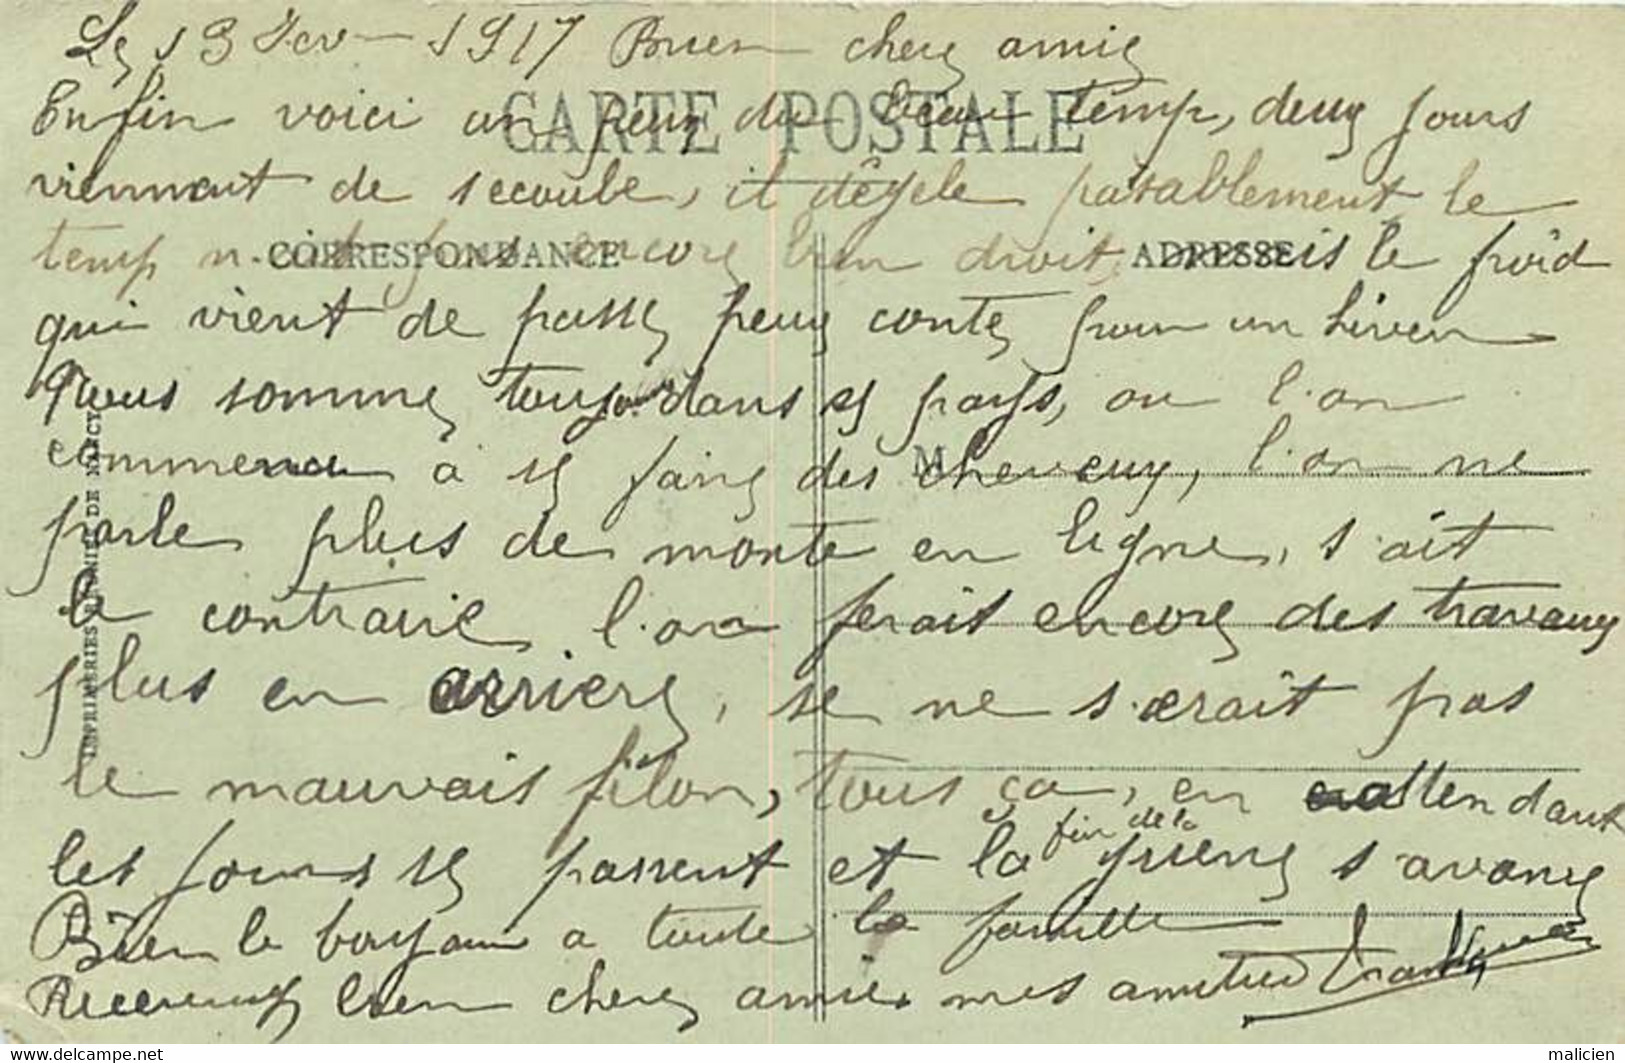 Le 13 Fev 1917 Bien cher amie
CARTE POSTALE
Enfin voici un peux du beau temp, deux jours
viennent de s'ecoulé, il dégele pasablement le
temp n'est pas encore bien droit, mais le froid
CORRESPONDANCE ADRESSE
qui vient de passé peux conté pour un hiver
Nous somme toujours dans se pays, ou l'on
commence a se faire des cheveux, l'on ne
M
parle plus de monté en ligne, s'ait
le contraire l'on ferait encore des travaux
plus en arriere, se ne serait pas
le mauvais filon, tous ça, en attendant
les jours se passent et la fin de la guerre s'avance
Bien le bonjour a toute la famille
Recevez bien cher amie mes amitiés
IMPRIMERIES REUNIES DE NANCY
https://www.delcampe.net
malicien